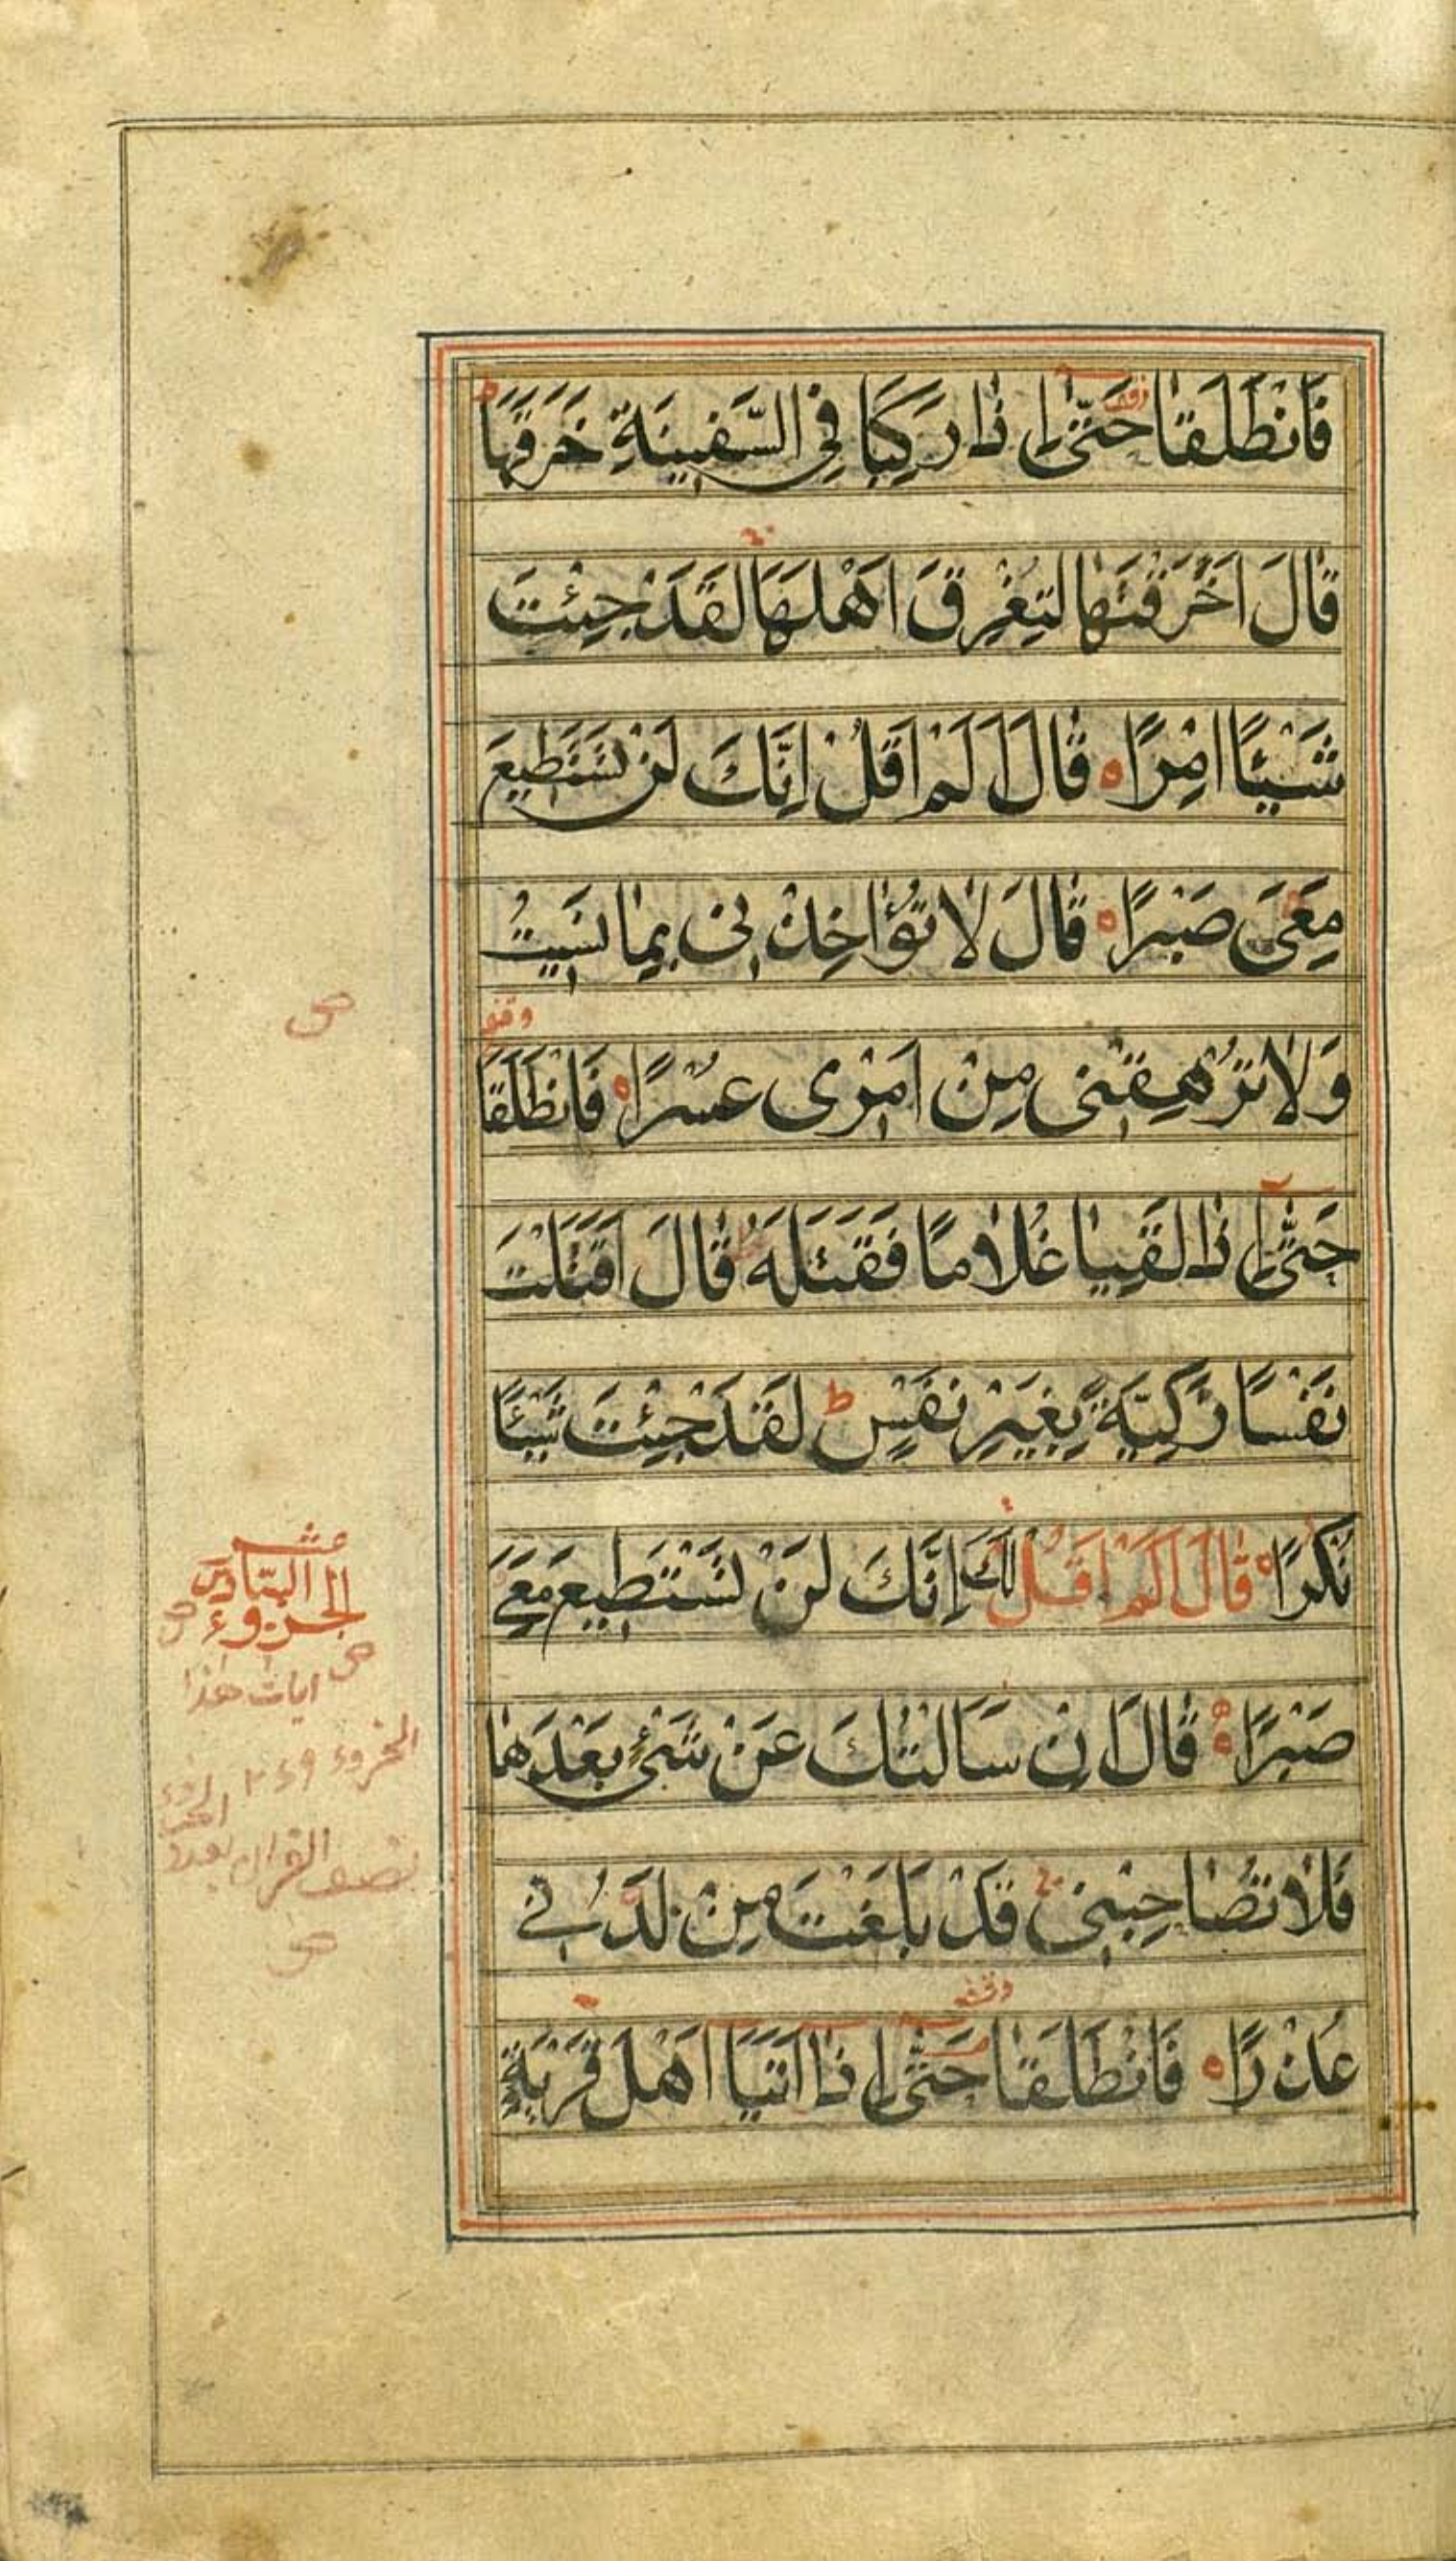 فَانْطَلَقَا حَتّٰى اِذَا رَكِبَا فِي السَّفِينَةِ خَرَقَهَا ط
قَالَ اَخَرَقْتَهَا لِتُغْرِقَ اَهْلَهَا لَقَدْ جِئْتَ
شَيْئًا اِمْرًا ه قَالَ اَلَمْ اَقُلْ اِنَّكَ لَنْ تَسْتَطِيعَ
مَعِىَ صَبْرًا ه قَالَ لَا تُؤَاخِذْنِى بِمَا نَسِيتُ
وَلَا تُرْهِقْنِى مِنْ اَمْرِى عُسْرًا ه فَانْطَلَقَا
حَتّٰى اِذَا لَقِيَا غُلَامًا فَقَتَلَهُ قَالَ اَقَتَلْتَ
نَفْسًا زَكِيَّةً بِغَيْرِ نَفْسٍ ط لَقَدْ جِئْتَ شَيْئًا
نُكْرًا ه قَالَ اَلَمْ اَقُلْ لَكَ اِنَّكَ لَنْ تَسْتَطِيعَ مَعِيَ
صَبْرًا ه قَالَ اِنْ سَاَلْتُكَ عَنْ شَىْءٍ بَعْدَهَا
فَلَا تُصَاحِبْنِى قَدْ بَلَغْتَ مِنْ لَدُنِّي
عُذْرًا ه فَانْطَلَقَا حَتّٰى اِذَا اَتَيَا اَهْلَ قَرْيَةٍ
الجزوء السادس عشر
ايات هذا
الجزوء
نصف القران